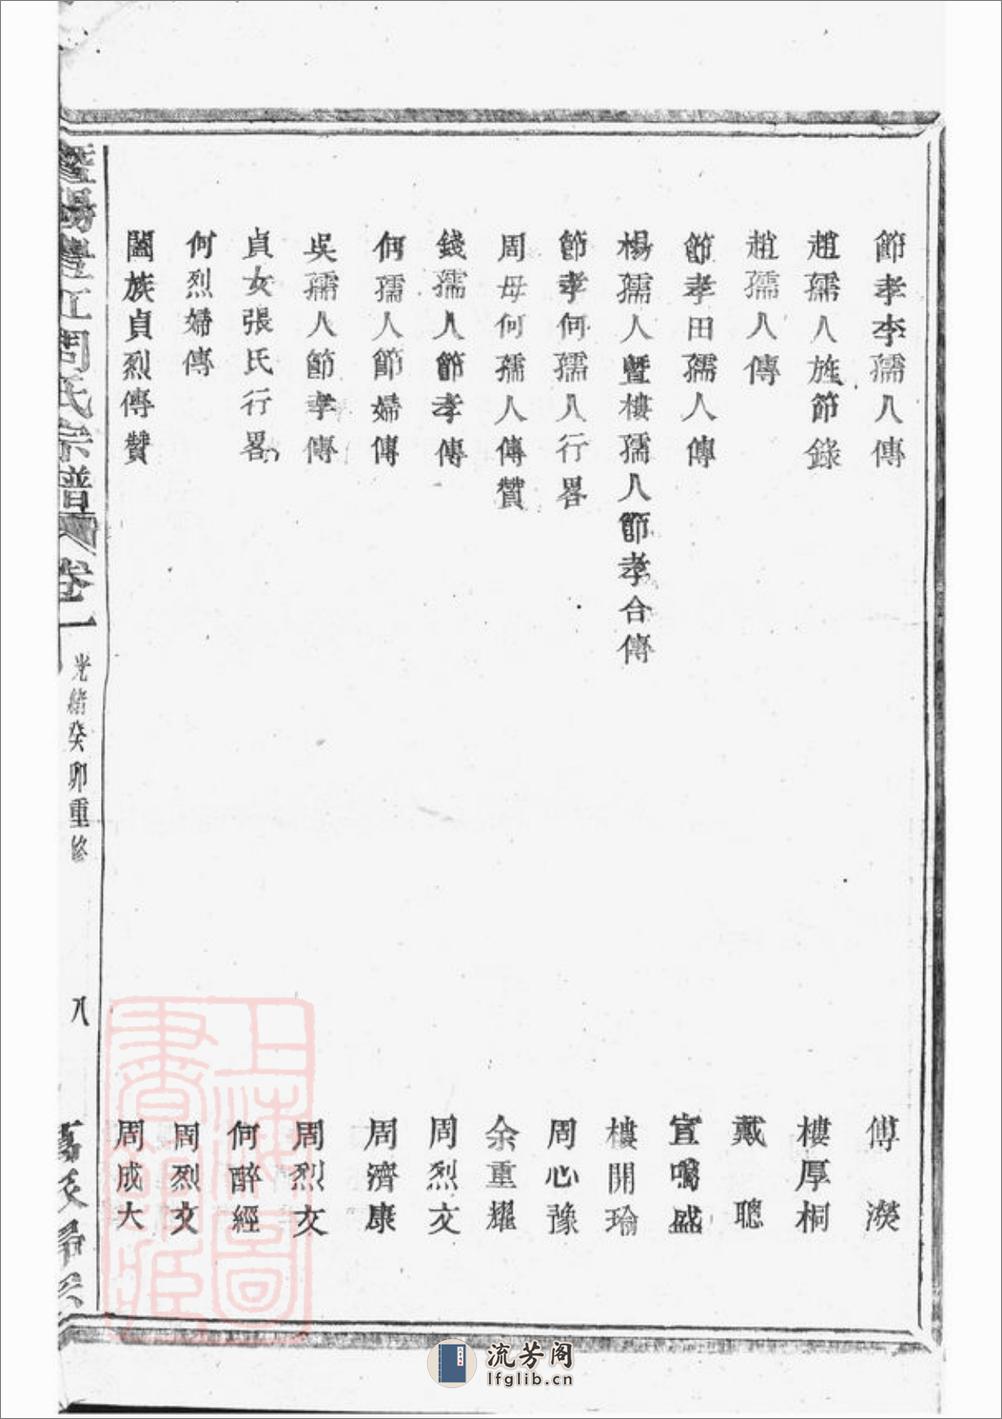 節孝李孺人傳 傅 濙
趙孺人旌節錄 樓厚桐
趙孺人傳 戴 聰
節孝田孺人傳 宣鳴盛
楊孺人曁樓孺人節孝合傳 樓開瑜
節孝何孺人行畧 周心豫
周母何孺人傳贊 余重耀
錢孺人節孝傳 周烈文
何孺人節婦傳 周濟康
吳孺人節孝傳 周烈文
貞女張氏行畧 何醉經
何烈婦傳 周烈文
闔族貞烈傳贊 周成大
暨陽豐江周氏宗譜 卷一 光緒癸卯重修 八
上海圖書館藏
流芳阁
lfglib.cn